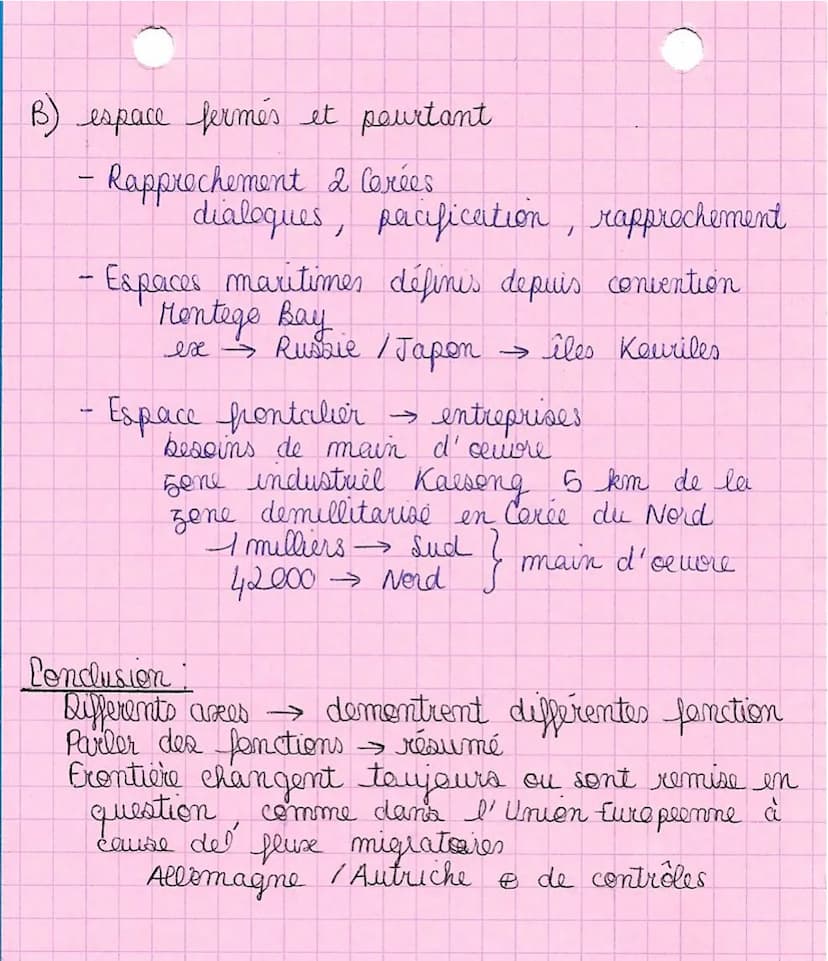 B) espace fermés et pourtant
- Rapprochement 2 Corées
dialogues, pacification, rapprochement
- Espaces maritimes définis depuis convention
Montego Bay
ex → Russie / Japon → îles Kouriles
- Espace frontalier → entreprises
besoins de main d'oeuvre
zone industriel Kaesong 5 km de la
zone demillitarisé en Corée du Nord
1 milliers → Sud } main d'oeuvre
42000 → Nord
Conclusion :
Differents axes → demontrent différentes fonction
Parler des fonctions → résumé
Frontière changent toujours ou sont remise en
question, comme dans l'Union Europeenne à
cause del' flux migratoires
Allemagne / Autriche ⊕ de contrôles